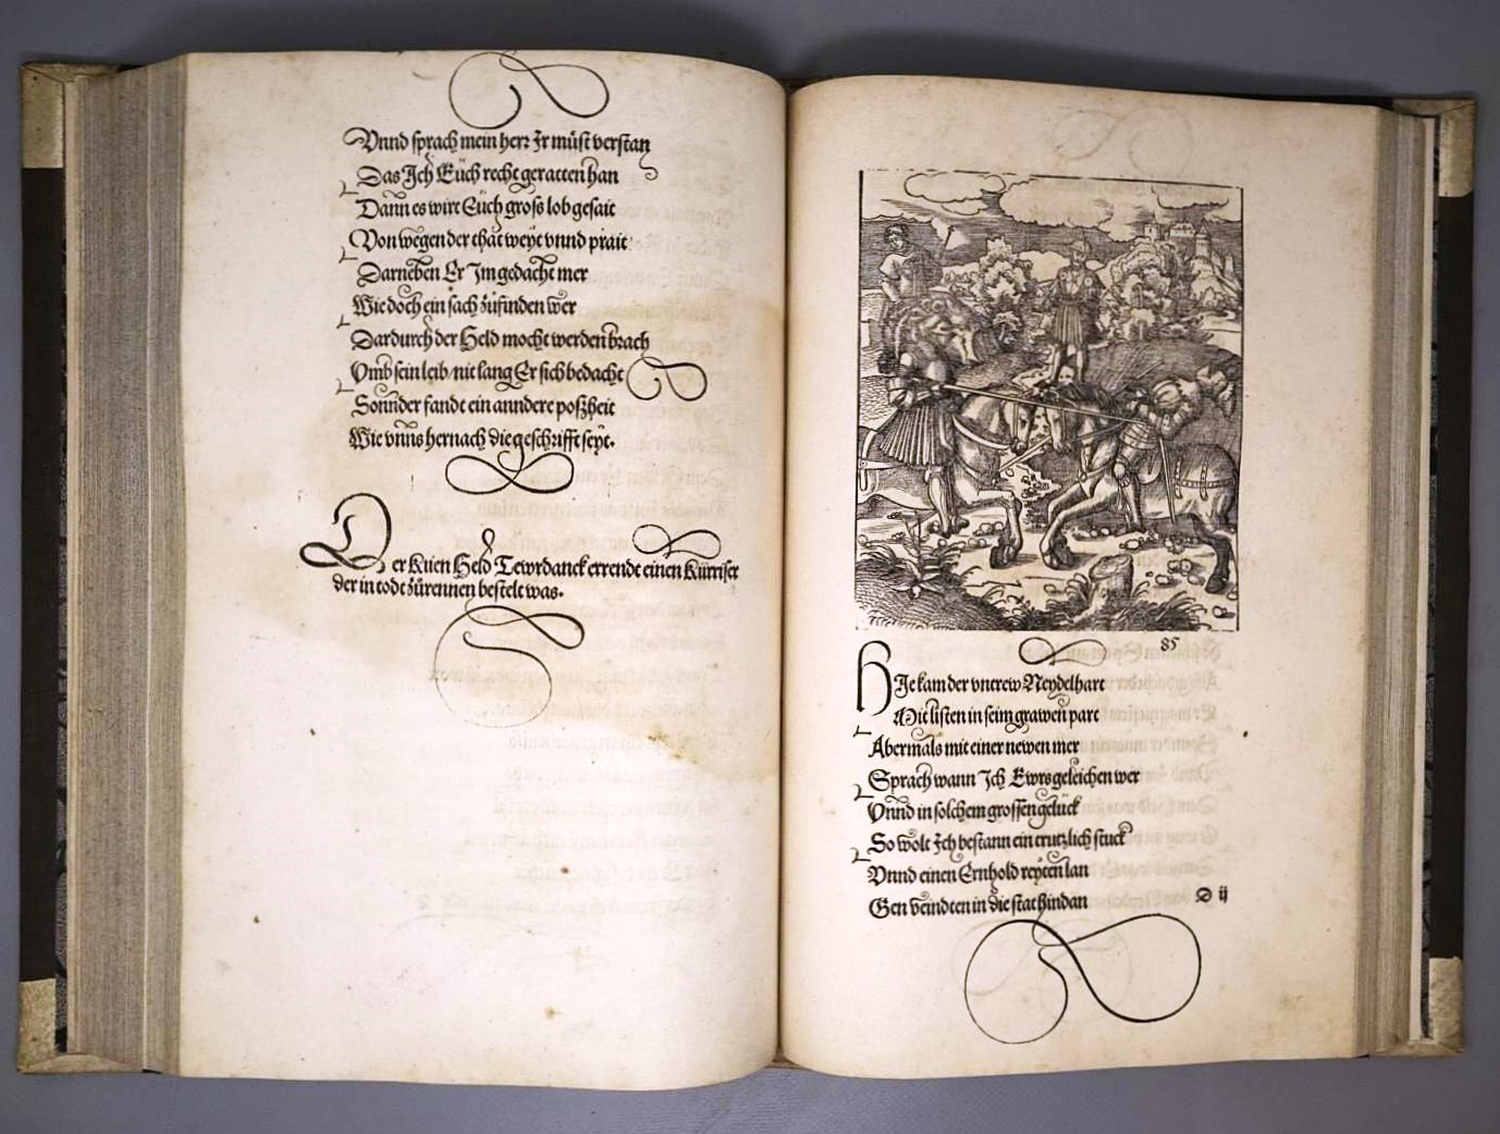 Vnnd sprach mein herr Ir müst verstan
Das Ich Eüch recht geratten han
Dann es wirt Eüch gross lob gesait
Von wegen der that weyt vnnd prait
Darneben Er Im gedacht mer
Wie doch ein sach zůfinden wer
Dardurch der Held mocht werden brach
Vmb sein leib/nit lang Er sich bedacht
Sonnder fandt ein anndere poßheit
Wie vnns hernach die geschrifft seyt.
Der Kuen Held Tewrdanck errendt einen Kürriser
der in todt zůrennen bestelt was.
85
HIe kam der vntrew Neydelhart
Mit listen in seim grawen part
Abermals mit einer newen mer
Sprach wann Ich Ewrs geleichen wer
Vnnd in solchem grossen gelück
So wolt Ich bestann ein trutzlich stuck
Vnnd einen Ernhold reyten lan
Gen veindten in die stat hindan
D ij